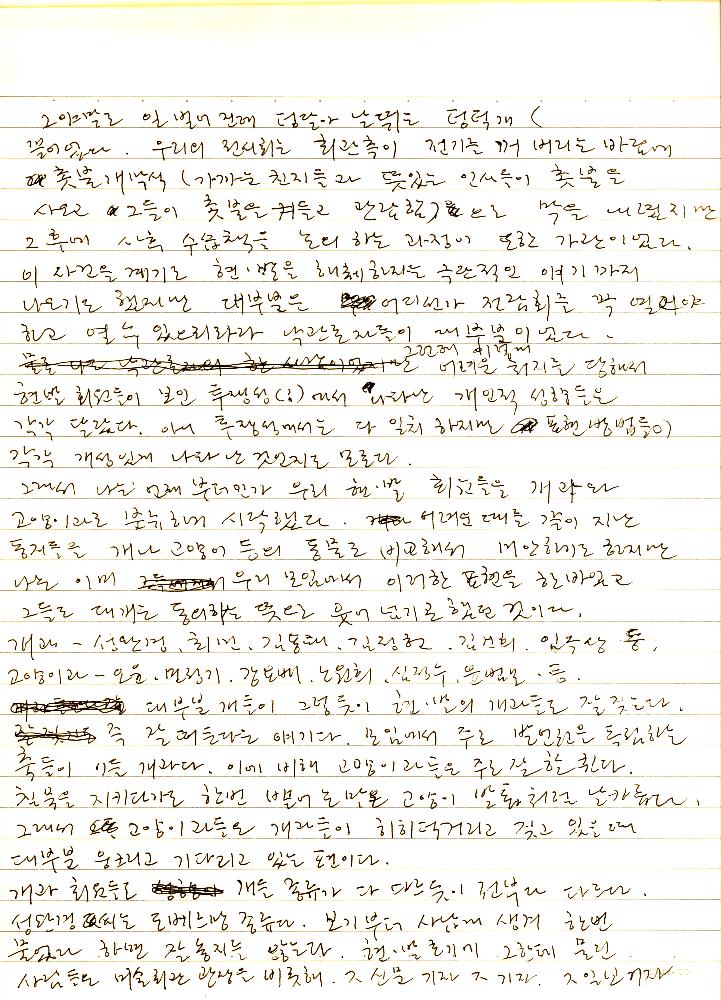 그야말로 일 벌어 진데 덩달아 날뛰는 덩덕개 (
끌어 없다. 우리의 전시회는 회관측이 전기를 꺼 버리는 바람에
촛불개막식 (가까운 친지들과 뜻있는 인사들이 촛불을
사오고 그들이 촛불을 켜들고 관람함)으로 막을 내렸지만
그 후에 사후 수습책을 논의 하는 과정이 또한 가관이었다.
이 사건을 계기로 현·발을 해체하자는 극단적인 얘기 까지
나오기도 했지만 대부분은 어디선가 전람회를 꼭 열어야
하고 열 수 있으리라라 낙관론자들이 대부분이었다.
그런데 이렇게 어려운 처지를 당해서
현발 회원들이 보인 투쟁성(!)에서 나타난 개인적 성향들은
각각 달랐다. 아니 투쟁성에서는 다 일치 하지만 표현 방법들이
각각 개성있게 나타 난 것인지도 모른다.
그래서 나는 언제 부터인가 우리 현·발 회원들을 개과와
고양이과로 분류하기 시작했다. 어려운 때를 같이 지난
동지들을 개나 고양이 등의 동물로 비교해서 미안하기도 하지만
나는 이미 우리 모임에서 이러한 표현을 한바있고
그들도 대개는 동의하는 뜻으로 웃어 넘기곤 했던 것이다.
개과 - 성완경, 최민, 김용태, 김정헌, 김건희, 임옥상 등,
고양이과 - 오윤, 민정기, 강요배, 노원희, 심정수, 윤범모, 등.
대부분 개들이 그렇듯이 현·발의 개과들도 잘 짖는다.
즉 잘 떠든다는 얘기다. 모임에서 주로 발언권을 독점하는
축들이 이들 개과다. 이에 비해 고양이과들은 주로 잘 할퀸다.
침묵을 지키다가도 한번 뱉어 논 말은 고양이 발톱처럼 날카롭다.
그래서 고양이과들은 개과들이 히히덕거리고 짖고 있을 때
대부분 웅크리고 기다리고 있는 편이다.
개과 회원들도 개들 종류가 다 다르듯이 전부다 다르다.
성완경씨는 도베르만 종류다. 보기부터 사납게 생겨 한번
물었다 하면 잘 놓지를 않는다. 현·발 초기에 그한테 물린
사람들은 미술회관 관장을 비롯해, ㅈ신문 기자 ㅈ기자, ㅈ일보 기자